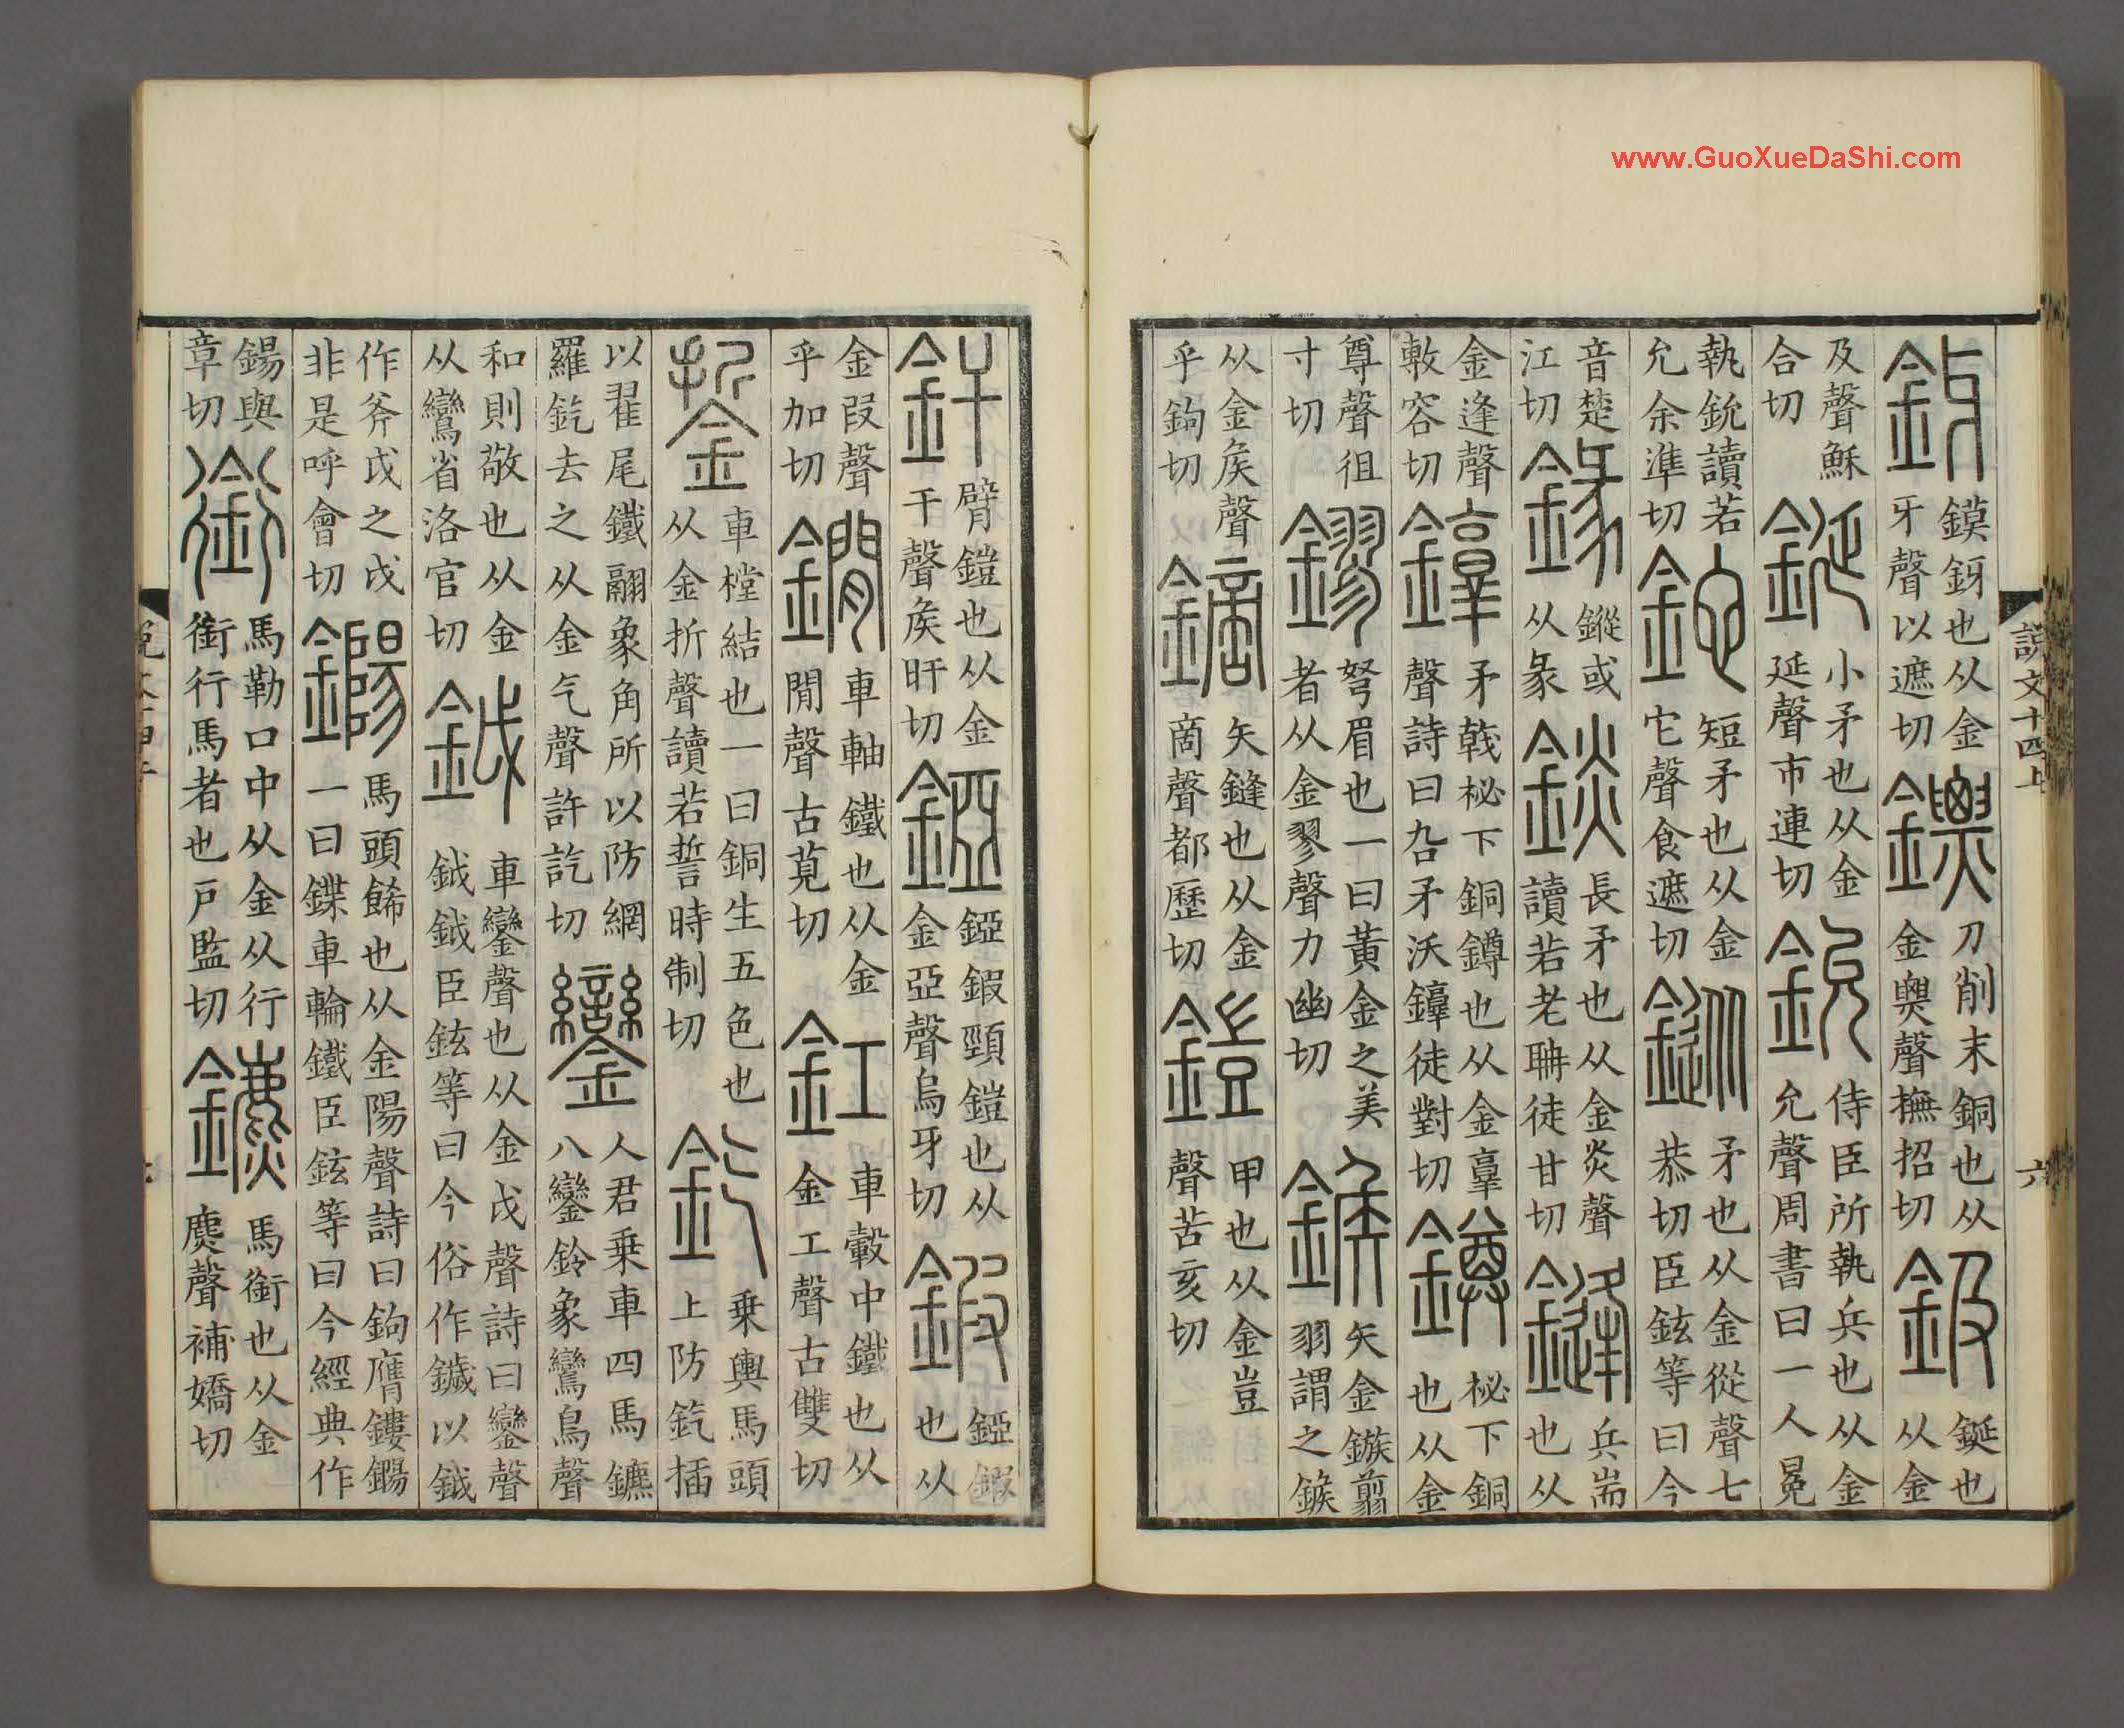 www.GuoXueDaShi.com
說文十四上 六
釾鏌釾也从金牙聲以遮切鏢刀削末銅也从金㶾聲撫招切鈒鋋也从金
及聲穌合切鋋小矛也从金延聲市連切鈗侍臣所執兵也从金允聲周書曰一人冕
執鈗讀若允余準切鉈短矛也从金它聲食遮切鏦矛也从金從聲七恭切臣鉉等曰今
音楚江切録鏦或从彖錟長矛也从金炎聲讀若老聃徒甘切鏠兵耑也从
金逢聲敷容切錞矛戟柲下銅鐏也从金𦎫聲詩曰叴矛沃錞徒對切鐏柲下銅也从金
尊聲徂寸切鏐弩眉也一曰黃金之美者从金翏聲力幽切鍭矢金鏃翦羽謂之鍭
从金矦聲乎鉤切鏑矢鏠也从金啻聲都歷切鎧甲也从金豈聲苦亥切
釬臂鎧也从金干聲矦旰切錏錏鍜頸鎧也从金亞聲烏牙切鍜錏鍜也从
金叚聲乎加切鐗車軸鐵也从金閒聲古莧切釭車轂中鐵也从金工聲古雙切
銴車樘結也一曰銅生五色也从金折聲讀若誓時制切釳乗輿馬頭上防釳插
以翟尾鐵翮象角所以防網羅釳去之从金气聲許訖切鑾人君乗車四馬鑣八鑾鈴象鸞鳥聲
和則敬也从金从鸞省洛官切鉞車鑾聲也从金戉聲詩曰鑾聲鉞鉞臣鉉等曰今俗作鐬以鉞
作斧戉之戉非是呼會切鐊馬頭飾也从金陽聲詩曰鉤膺鏤鐊一曰鍱車輪鐵臣鉉等曰今經典作
鍚與章切銜馬勒口中从金从行銜行馬者也戶監切鑣馬銜也从金麃聲補嬌切